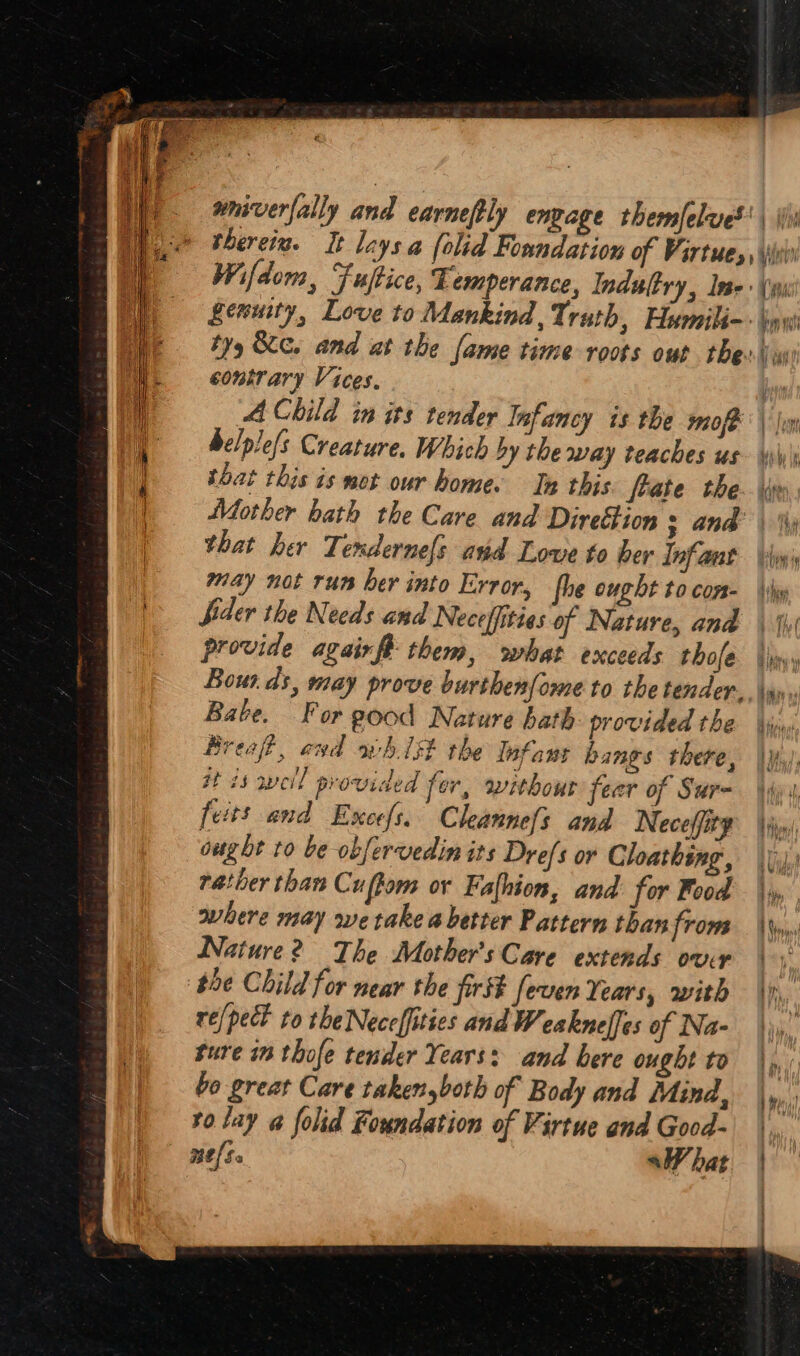 univerſally and earneſtly engage themſelves
therein. It lays a ſolid Foundation of Virtue,
Wiſdom, Juſtice, Temperance, Induſtry, In-
genuity, Love to Mankind, Truth, Humili-
ty, &c. and at the ſame time roots out the
contrary Vices.
A Child in its tender Infancy is the moſt
helpleſs Creature. Which by the way teaches us
that this is not our home. In this ſtate the
Mother hath the Care and Direction; and
that her Tenderneſs and Love to her Infant
may not run her into Error, ſhe ought to con-
ſider the Needs and Neceſſities of Nature, and
provide againſt them, what exceeds thoſe
Bounds, may prove burthenſome to the tender
Babe. For good Nature hath provided the
Breaſt, and whilſt the Infant hangs there,
it is well provided for, without fear of Sur-
feits and Exceſs. Cleanneſs and Neceſſity
ought to be obſerved in its Dreſs or Cloathing,
rather than Cuſtom or Faſhion, and for Food
where may we take a better Pattern than from
Nature? The Mother's Care extends over
the Child for near the firſt ſeven Years, with
reſpect to the Neceſſities and Weakneſſes of Na-
ture in thoſe tender Years: and here ought to
be great Care taken, both of Body and Mind,
to lay a ſolid Foundation of Virtue and Good-
neſs.
What